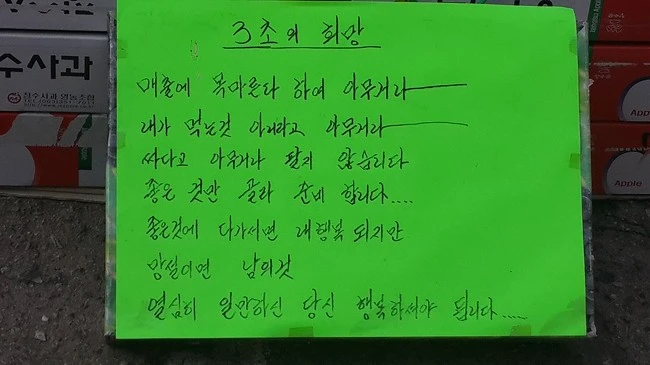 3초의 희망
매출에 목마른다 하여 아무거나
내가 먹는것 아니라고 아무거나
싸다고 아무거나 팔지 않습니다
좋은 것만 골라 준비 합니다....
좋은것에 다가서면 내행복 되지만
망설이면 남의것
열심히 일만하신 당신 행복하셔야 됩니다.....
수사과
장수사과 영농조합
Apple
Apple